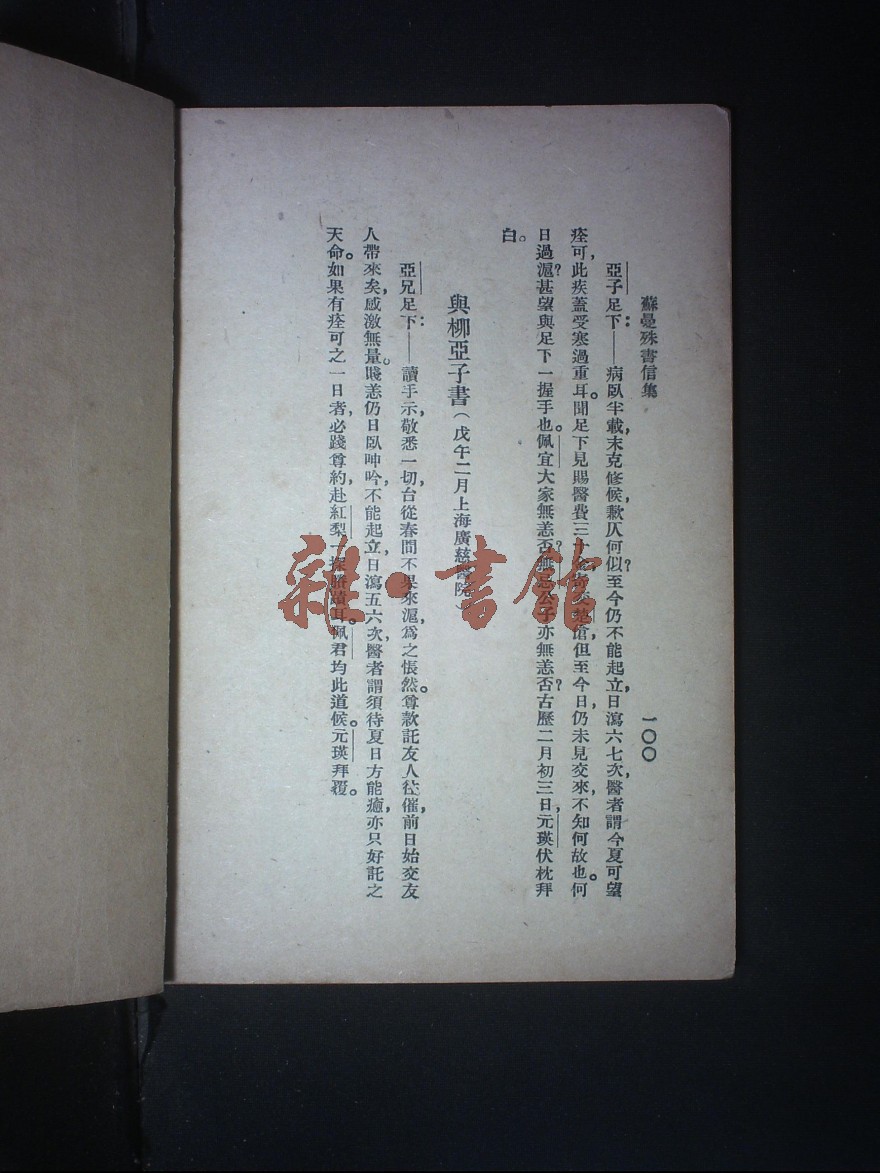 蘇曼殊書信集
一〇〇
亞子足下：——病臥半載，末克修候，歉仄何似？至今仍不能起立，日瀉六七次，醫者謂今夏可望
痊可，此疾蓋受寒過重耳。聞足下見賜醫費三十 愴，但至今日，仍未見交來，不知何故也。何
日過滬？甚望與足下一握手也。佩宜大家無恙否？無忌公子亦無恙否？古歷二月初三日，元瑛伏枕拜
白。
與柳亞子書（戊午二月上海廣慈醫院）
亞兄足下：——讀手示，敬悉一切，台從春間不果來滬，爲之悵然。尊款託友人往催，前日始交友
人帶來矣，感激無量。賤恙仍日臥呻吟，不能起立，日瀉五六次，醫者謂須待夏日方能癒，亦只好託之
天命。如果有痊可之一日者，必踐尊約，赴紅梨一探勝蹟耳。佩君均此道候。元瑛拜覆。
雜·書館